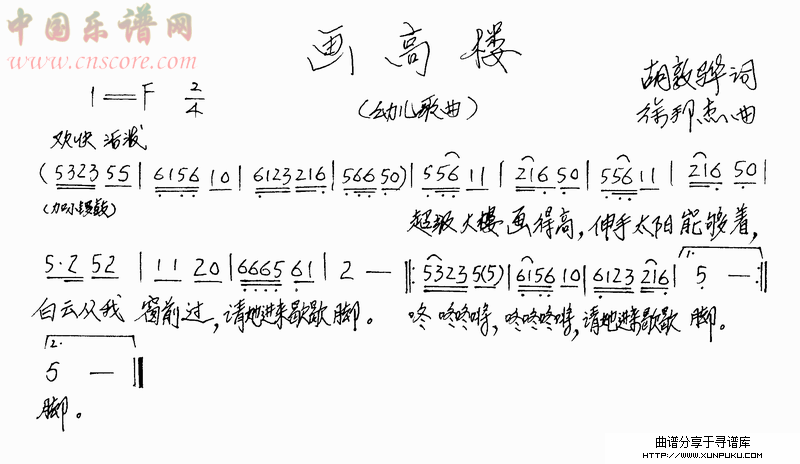 中国乐谱网
www.cnscore.com
画高楼
(幼儿歌曲)
1=F 2/4
胡敦骅词
徐邦杰曲
欢快 活泼
(5323 55 | 6156 10 | 6123 216 | 566 50) | 556 11 | 216 50 | 556 11 | 216 50 |
(加小镲鼓)
超级大楼画得高,伸手太阳能够着,
5·2 52 | 11 20 | 6665 61 | 2 — |: 5323 5(5) | 6156 10 | 6123 216 | 1. 5 — :|
白云从我窗前过,请她进来歇歇脚。 咚咚咚咚,咚咚咚咚,请她进来歇歇脚。
2.
5 — ‖
脚。
曲谱分享于寻谱库
HTTP://WWW.XUNPUKU.COM